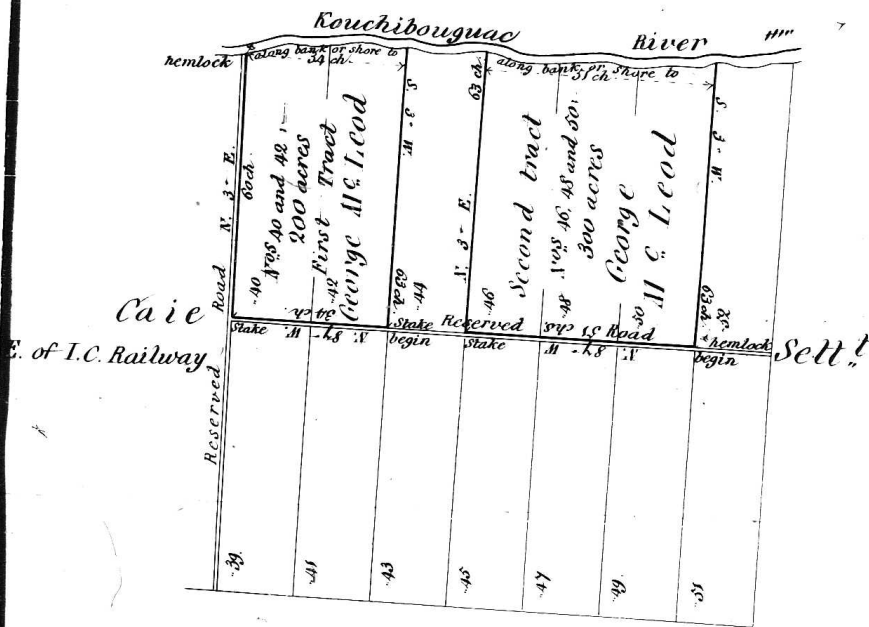 Kouchibouguac River
hemlock
along bank or shore to
34 ch.
along bank or shore to
51 ch
Road N. 3- E.
60 ch
Nos 40 and 42:
200 acres
First Tract
George McLeod
S. 3- W.
63 ch.
63 ch
N. 3- E.
Second tract
Nos 46, 48 and 50:
300 acres
George
McLeod
S. 3- W.
63 ch.
40
42
44
46
48
50
52
Caie
Settt
E. of I.C. Railway
Stake
N. 87- W. 34 ch.
Stake
begin
Reserved Road
Stake
N. 87- W. 51 chs
hemlock
begin
Reserved
39
41
43
45
47
49
51